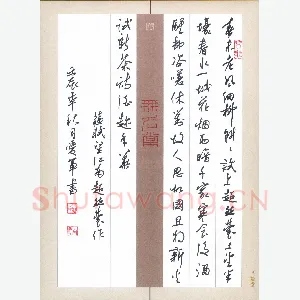 春未老風細柳斜斜試上超然臺上望半
壕春水一城花烟雨暗千家寒食後酒
醒却咨嗟休對故人思故國且將新火
試新茶詩酒趁年華
蘇軾望江南超然臺作
壬辰年秋月愛軍書
Shufawang.CN